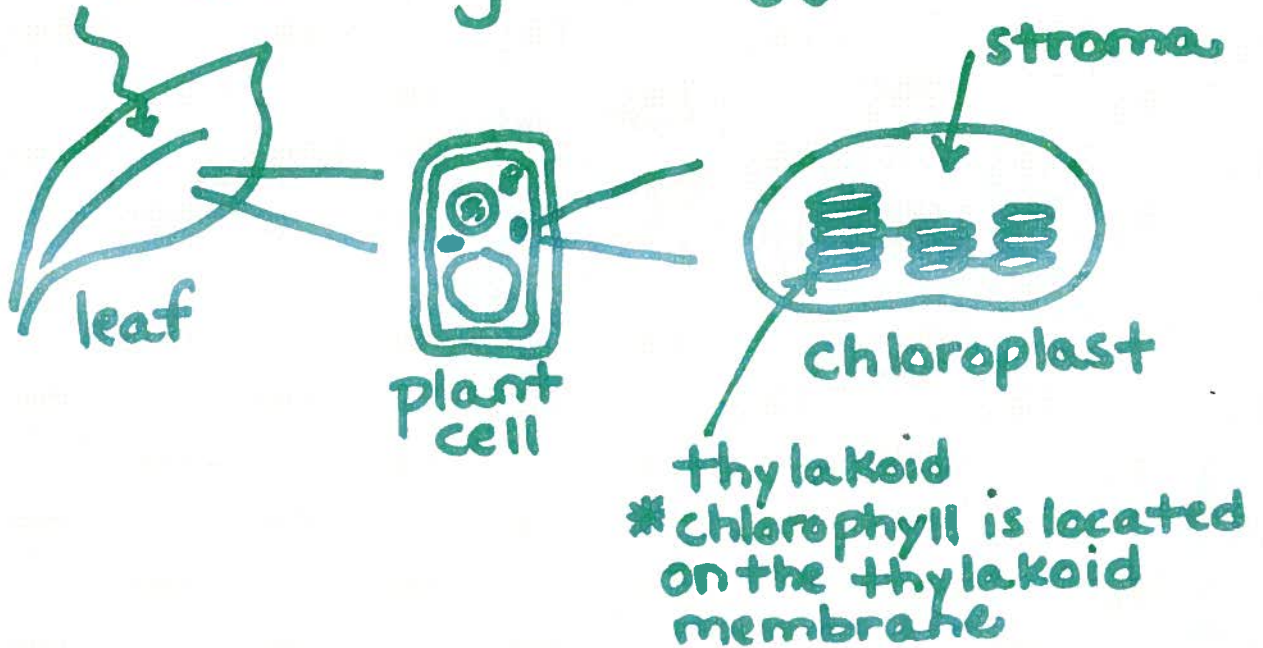 stroma
leaf
plant
cell
chloroplast
thylakoid
* chlorophyll is located
on the thylakoid
membrane